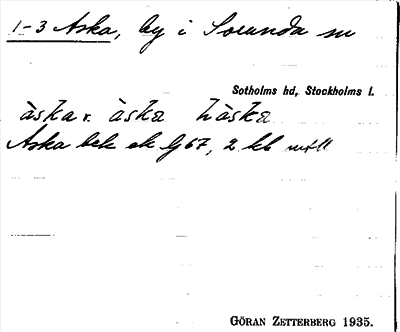 1-3 Aska, by i Sorunda sn
Sotholms hd, Stockholms l.
àska r. àska hàska
Aska bek ek G 67, 2 kl
GÖRAN ZETTERBERG 1935.